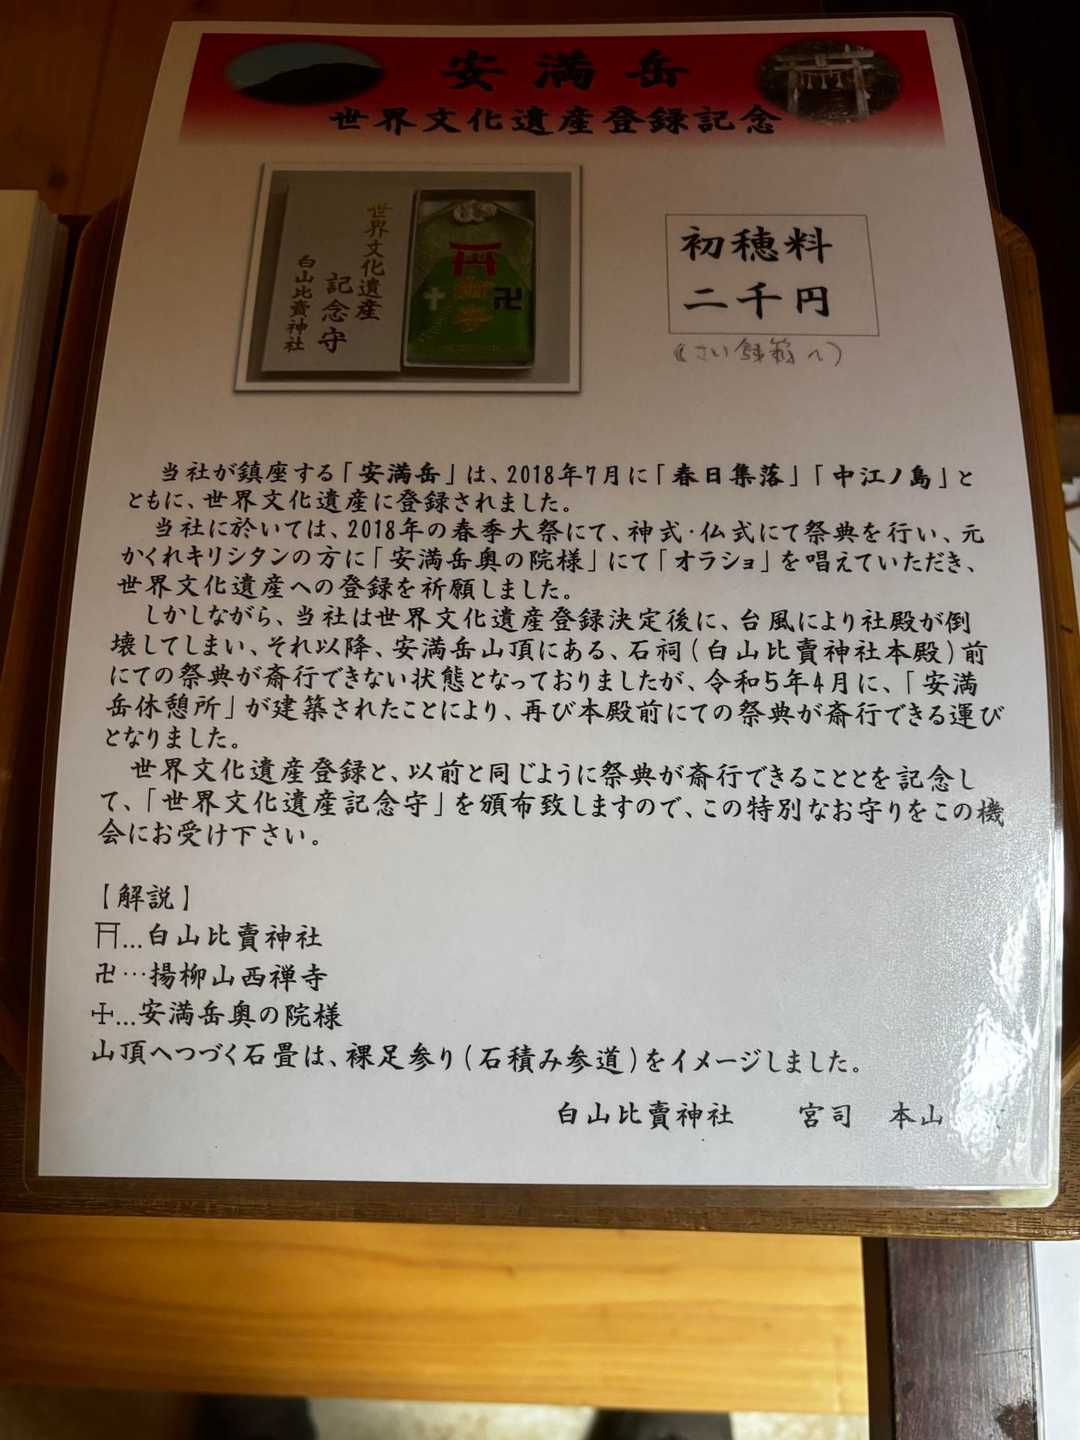 安満岳
世界文化遺産登録記念
世界文化遺産
記念守
白山比賣神社
卍
初穂料
二千円
(さい銭箱へ)
当社が鎮座する「安満岳」は、2018年7月に「春日集落」「中江ノ島」と
ともに、世界文化遺産に登録されました。
当社に於いては、2018年の春季大祭にて、神式・仏式にて祭典を行い、元
かくれキリシタンの方に「安満岳奥の院様」にて「オラショ」を唱えていただき、
世界文化遺産への登録を祈願しました。
しかしながら、当社は世界文化遺産登録決定後に、台風により社殿が倒
壊してしまい、それ以降、安満岳山頂にある、石祠(白山比賣神社本殿)前
にての祭典が斎行できない状態となっておりましたが、令和5年4月に、「安満
岳休憩所」が建築されたことにより、再び本殿前にての祭典が斎行できる運び
となりました。
世界文化遺産登録と、以前と同じように祭典が斎行できることとを記念し
て、「世界文化遺産記念守」を頒布致しますので、この特別なお守りをこの機
会にお受け下さい。
【解説】
⛩…白山比賣神社
卍…揚柳山西禅寺
☩…安満岳奥の院様
山頂へつづく石畳は、裸足参り(石積み参道)をイメージしました。
白山比賣神社 宮司 本山